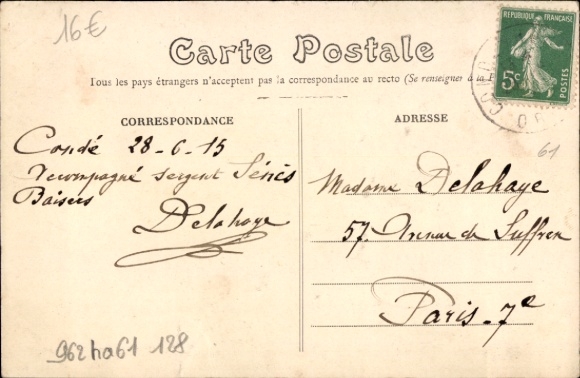 16€
Carte Postale
Tous les pays étrangers n'acceptent pas la correspondance au recto (Se renseigner à la P
RÉPUBLIQUE FRANÇAISE
5c
POSTES
CORRESPONDANCE
Condé 28-6-15
Accompagné sergent
Baisers
Delahaye
ADRESSE
61
Madame Delahaye
57. Avenue de Suffren
Paris-7e
962ha61 128